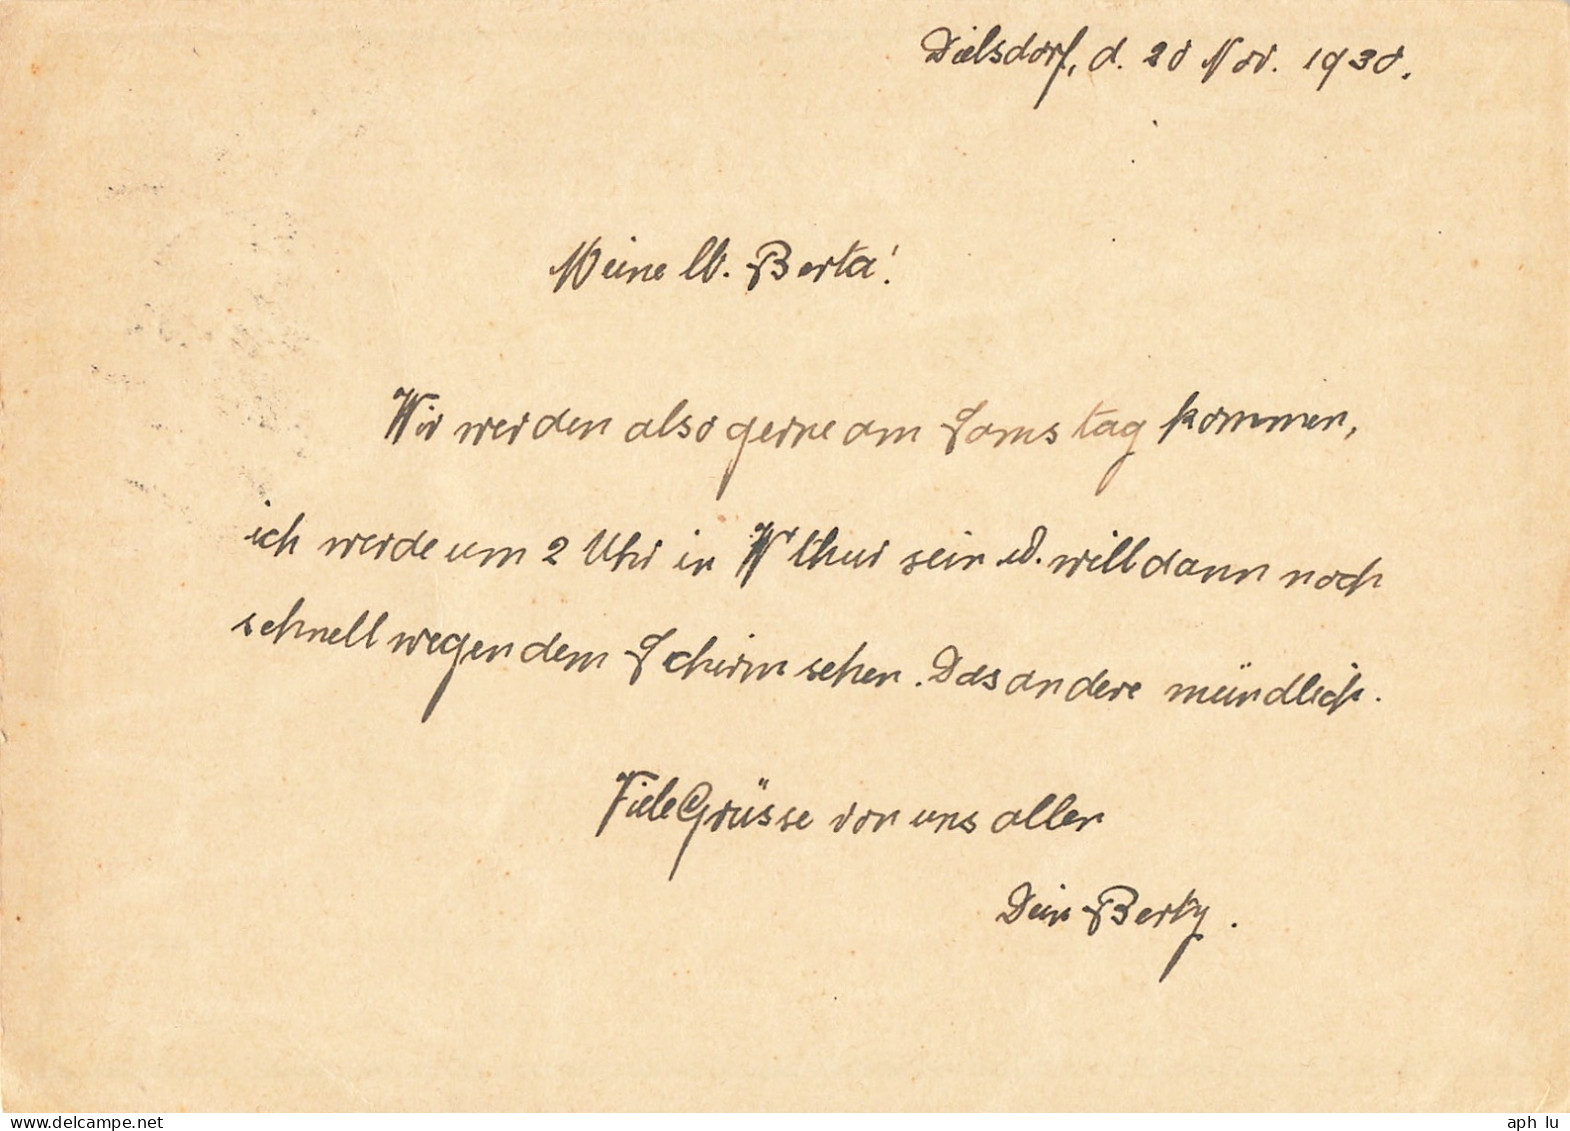 Dielsdorf, d. 20 Nov. 1930.
Meine lb. Berta!
Wir werden also gerne am Samstag kommen,
ich werde um 2 Uhr in W'thur sein u. will dann noch
schnell wegen dem Schirm sehen. Das andere mündlich.
Viele Grüsse von uns allen
Dein Berty.
delcampe.net
aph_lu